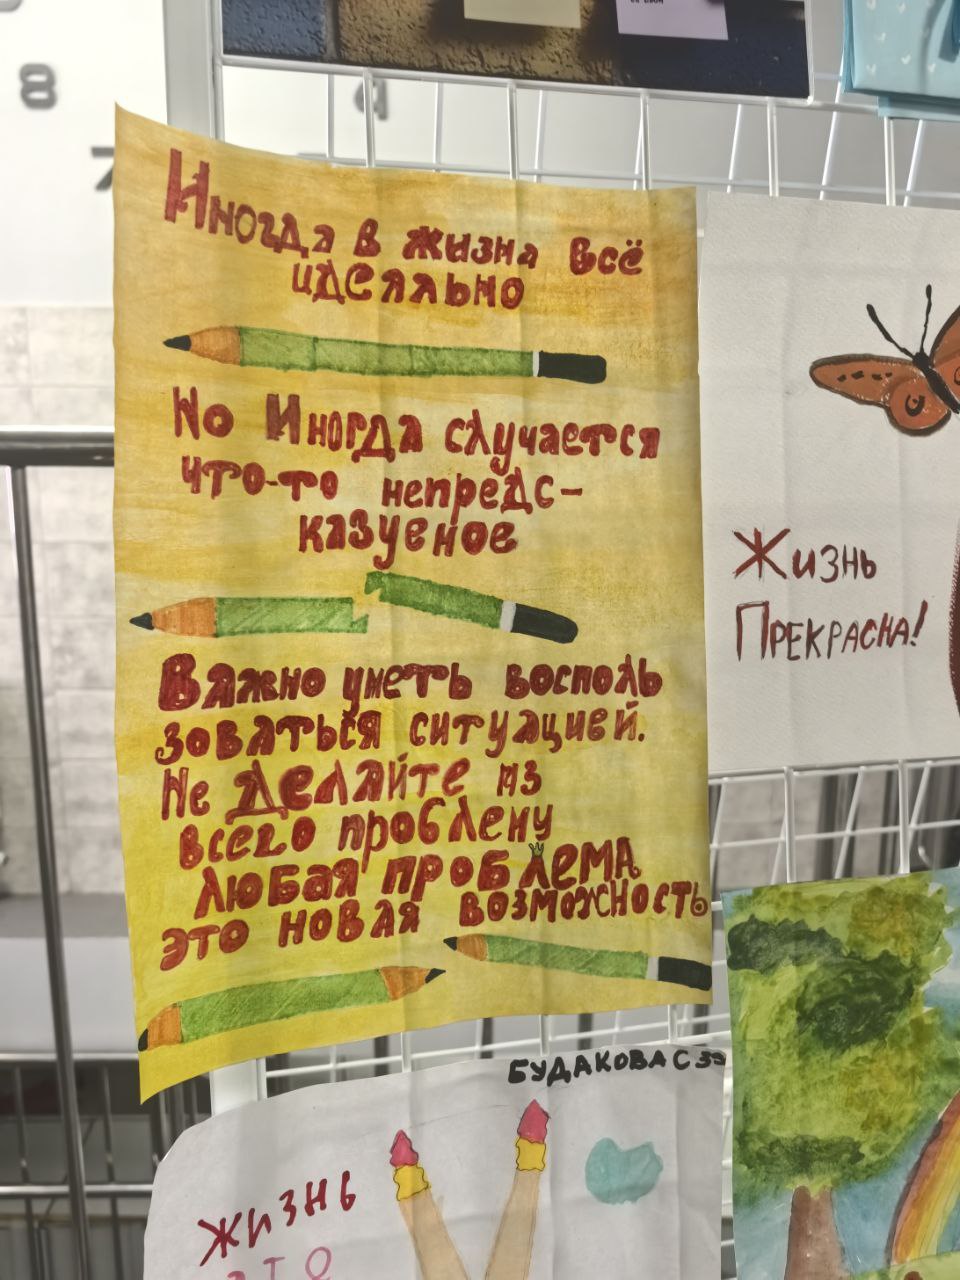 8
9
7
Иногда в жизна всё
идеяльно
Но Иногда случается
что-то непредс-
казуеное
Важно уметь восполь
зоваться ситуацией.
Не делайте из
всего проблену
любая проблема
это новая возможность
Жизнь
Прекрасна!
БУДАКОВА С ЗЭ
жизнь
это